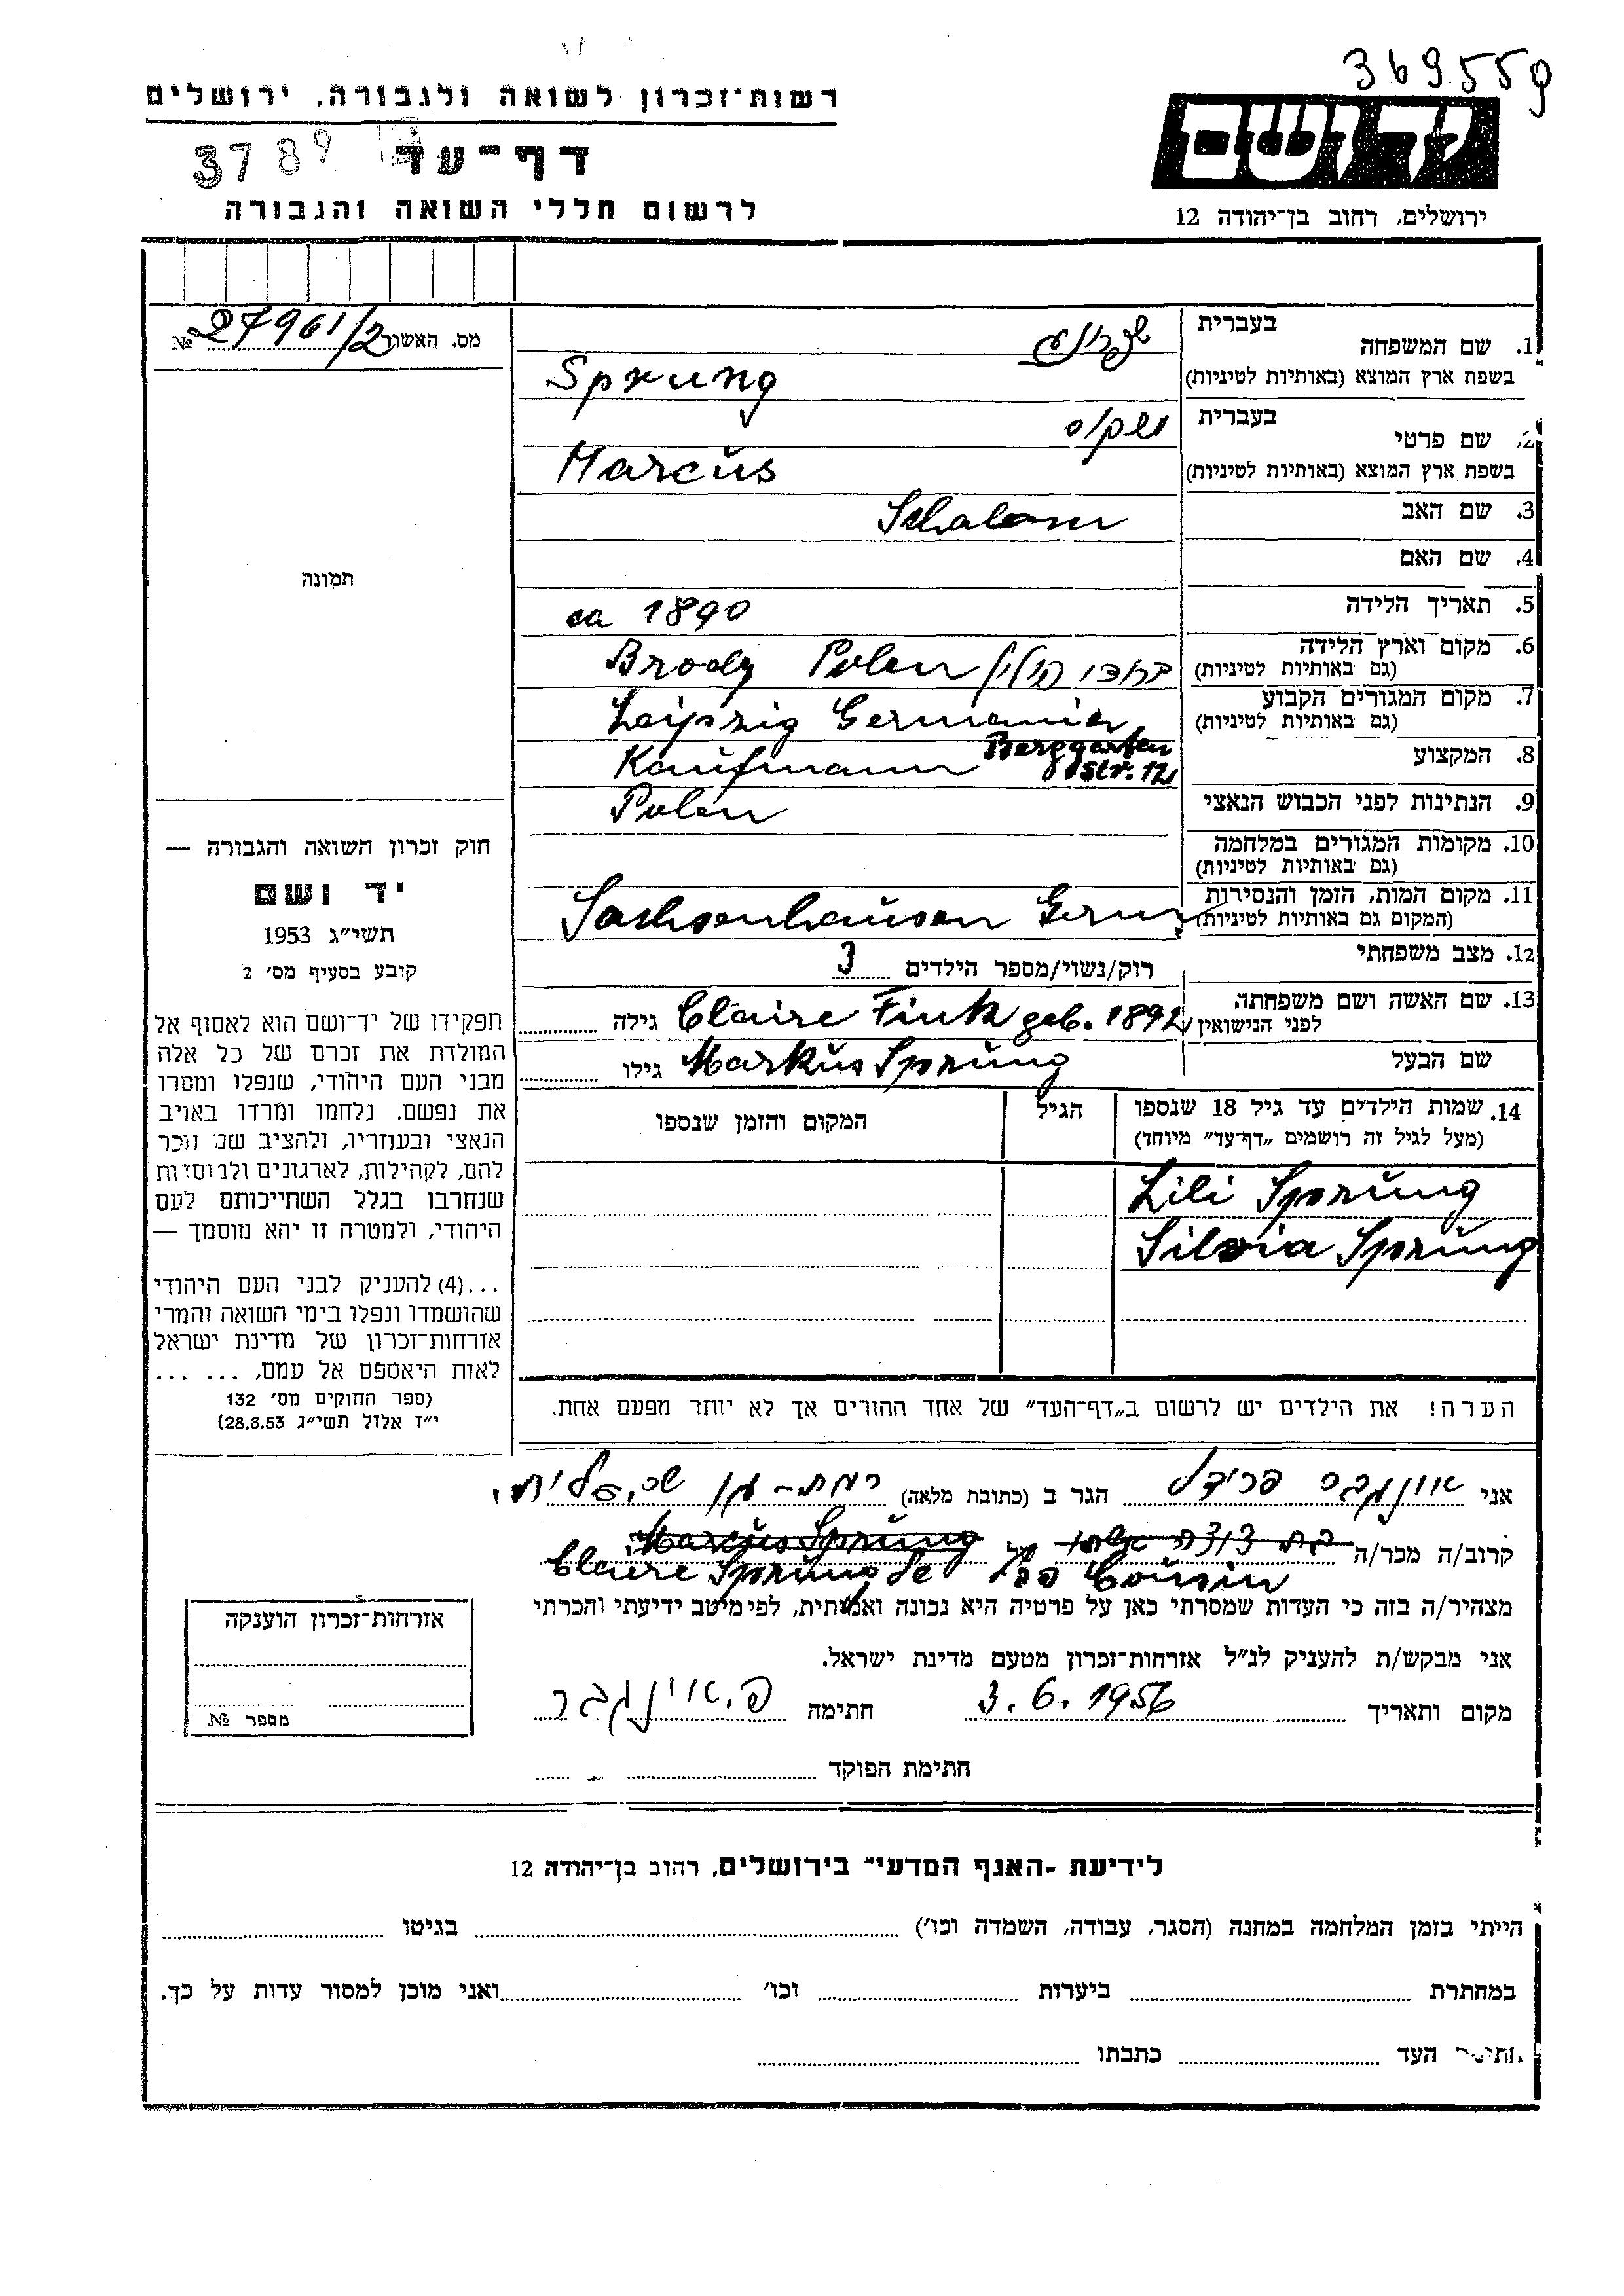 369559
רשות-זכרון לשואה ולגבורה, ירושלים
יד ושם
3789
דף-עד
לרשום חללי השואה והגבורה
ירושלים, רחוב בן-יהודה 12
מס. האשור 27961/2 №
תמונה
חוק זכרון השואה והגבורה —
יד ושם
תשי״ג 1953
קובע בסעיף מס׳ 2
תפקידו של יד-ושם הוא לאסוף אל
המולדת את זכרם של כל אלה
מבני העם היהודי, שנפלו ומסרו
את נפשם. נלחמו ומרדו באויב
הנאצי ובעוזריו, ולהציב שם וזכר
להם, לקהילות, לארגונים ולמוסדות
שנחרבו בגלל השתייכותם לעם
היהודי, ולמטרה זו יהא מוסמך —
...(4) להעניק לבני העם היהודי
שהושמדו ונפלו בימי השואה והמרי
אזרחות-זכרון של מדינת ישראל
לאות היאספם אל עמם, ... ...
(ספר החוקים מס׳ 132
י״ז אלול תשי״ג 28.8.53)
1. שם המשפחה בעברית שפרונג
בשפת ארץ המוצא (באותיות לטיניות) Sprung
2. שם פרטי בעברית מרקוס
בשפת ארץ המוצא (באותיות לטיניות) Marcus
3. שם האב Schalom
4. שם האם
5. תאריך הלידה ca 1890
6. מקום וארץ הלידה
(גם באותיות לטיניות) ברודי פולין Brody Polen
7. מקום המגורים הקבוע
(גם באותיות לטיניות) Leipzig Germania
Berggarten
Str. 12
8. המקצוע Kaufmann
9. הנתינות לפני הכבוש הנאצי Polen
10. מקומות המגורים במלחמה
(גם באותיות לטיניות)
11. מקום המות, הזמן והנסיבות
(המקום גם באותיות לטיניות) Sachsenhausen Germ.
12. מצב משפחתי רוק/נשוי/מספר הילדים 3
13. שם האשה ושם משפחתה
לפני הנישואין Claire Fink geb. 1892 גילה
שם הבעל Markus Sprung גילו
14. שמות הילדים עד גיל 18 שנספו
(מעל לגיל זה רושמים „דף-עד״ מיוחד)
הגיל
המקום והזמן שנספו
Lili Sprung
Silvia Sprung
הערה! את הילדים יש לרשום ב„דף-העד״ של אחד ההורים אך לא יותר מפעם אחת.
אני אונגבר פרידל הגר ב (כתובת מלאה) רמת-גן
קרוב/ה מכר/ה של Marcus Sprung
Cousin Claire Sprung
מצהיר/ה בזה כי העדות שמסרתי כאן על פרטיה היא נכונה ואמתית, לפי מיטב ידיעתי והכרתי
אני מבקש/ת להעניק לנ״ל אזרחות-זכרון מטעם מדינת ישראל.
מקום ותאריך 3.6.1956 חתימה פ. אונגבר
חתימת הפוקד
אזרחות-זכרון הוענקה
מספר №
לידיעת „האגף המדעי״ בירושלים, רחוב בן-יהודה 12
הייתי בזמן המלחמה במחנה (הסגר, עבודה, השמדה וכו׳) בגיטו
במחתרת ביערות וכו׳ ואני מוכן למסור עדות על כך.
חתימת העד כתבתו